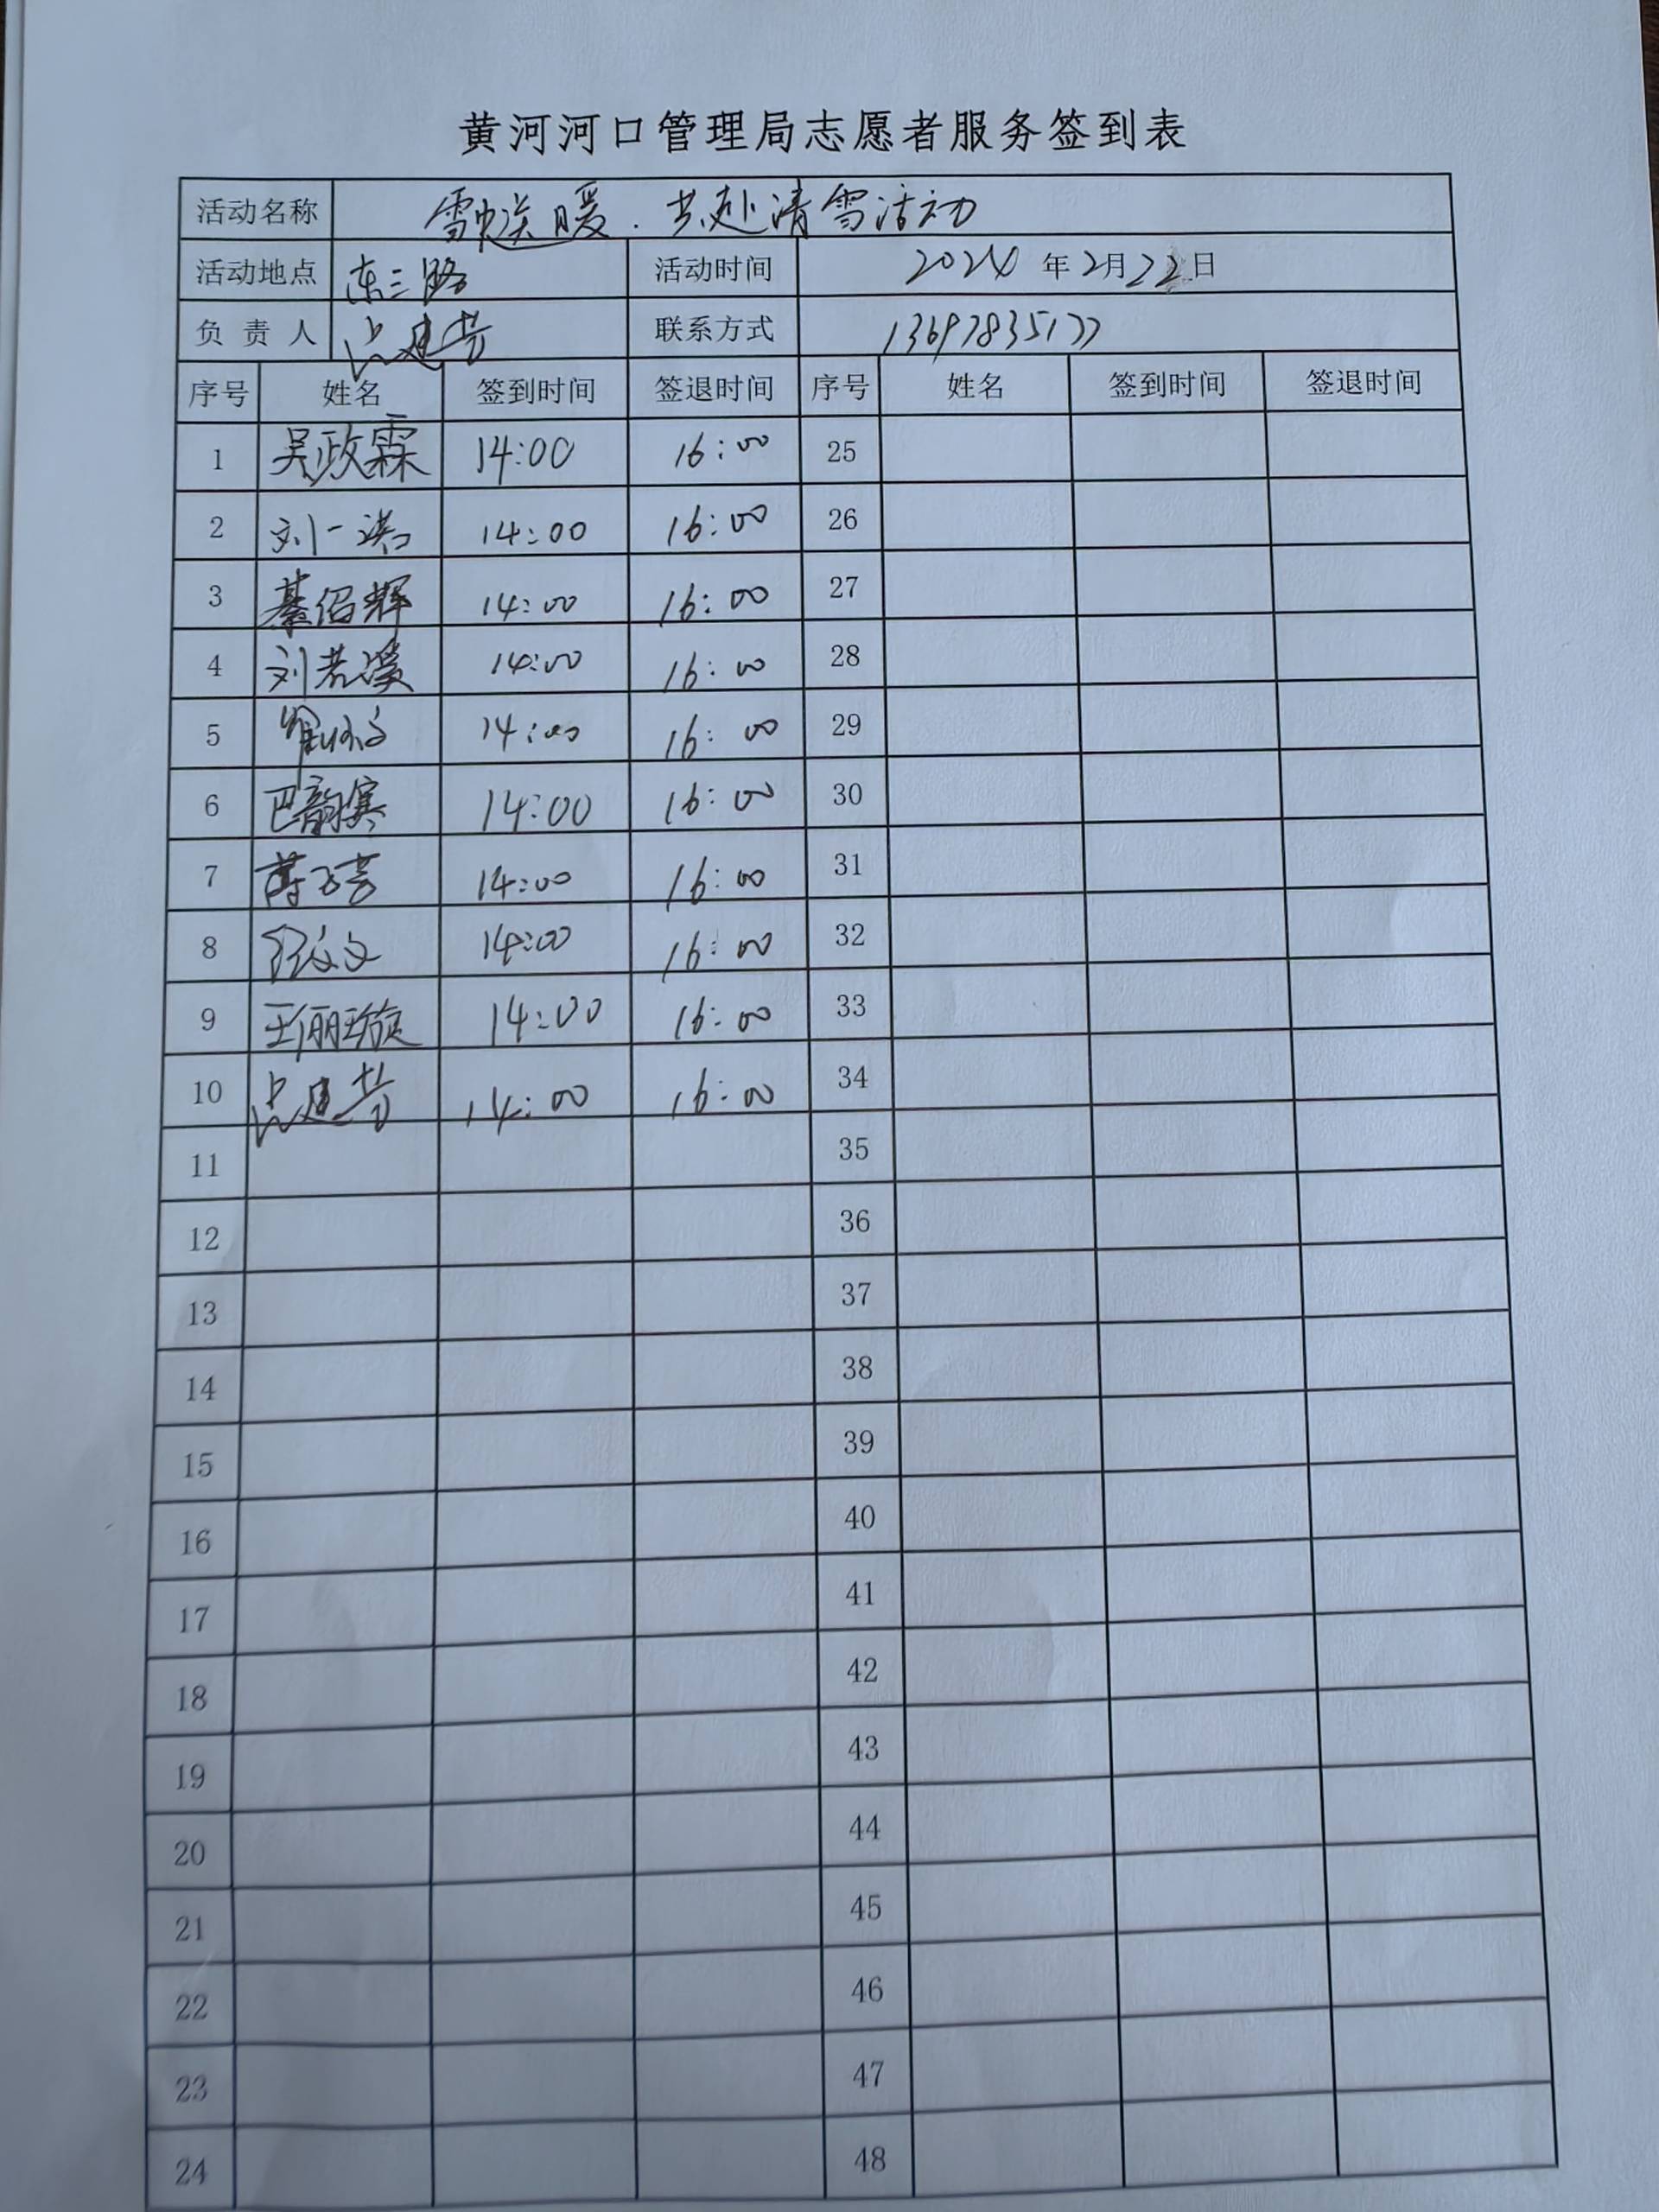 黄河河口管理局志愿者服务签到表
活动名称 雪中送暖.共赴清雪活动
活动地点 东三路 活动时间 2024年2月22日
负责人 建芳 联系方式 13697835177
序号 姓名 签到时间 签退时间 序号 姓名 签到时间 签退时间
1 吴政霖 14:00 16:00 25
2 刘一诺 14:00 16:00 26
3 綦绍辉 14:00 16:00 27
4 刘若溪 14:00 16:00 28
5 14:00 16:00 29
6 巴韵寒 14:00 16:00 30
7 14:00 16:00 31
8 14:00 16:00 32
9 王俪璇 14:00 16:00 33
10 建芳 14:00 16:00 34
11 35
12 36
13 37
14 38
15 39
16 40
17 41
18 42
19 43
20 44
21 45
22 46
23 47
24 48